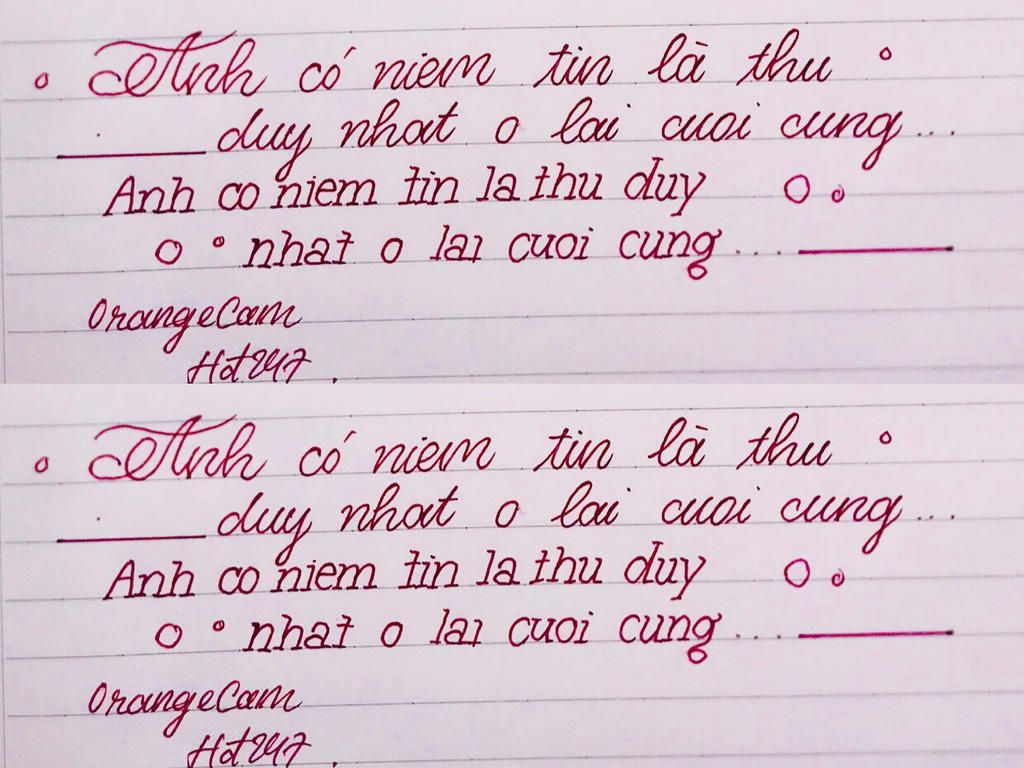 Anh có niem tin là thu
duy nhat o lai cuoi cung...
Anh co niem tin la thu duy
nhat o lai cuoi cung...
OrangeCam
Hot247.
Anh có niem tin là thu
duy nhat o lai cuoi cung...
Anh co niem tin la thu duy
nhat o lai cuoi cung...
OrangeCam
Hot247.